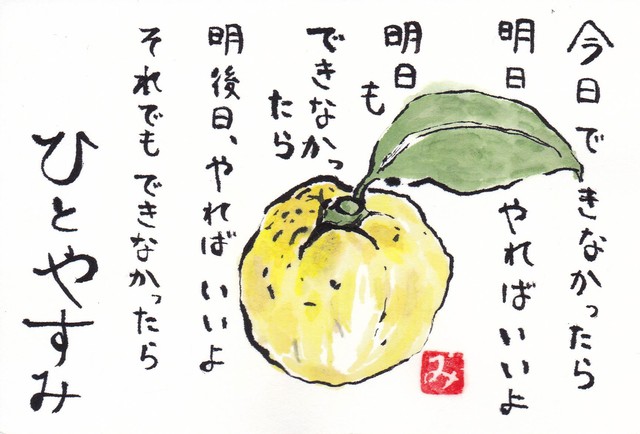 今日できなかったら
明日 やればいいよ
明日も
できなかったら
明後日、やればいいよ
それでもできなかったら
ひとやすみ
み